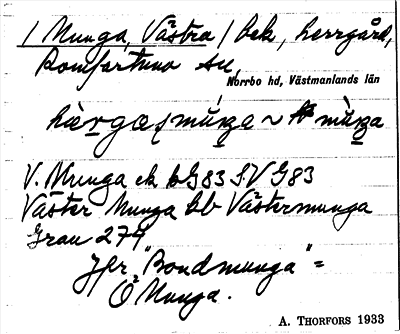 / Munga, Västra / bek, herrgård,
Romfartuna sn,
Norrbo hd, Västmanlands län
V. Munga ek bG83 S.V G83
Väster Munga kb Västermunga
Grau 279
Jfr "Bondmunga" =
Ö Munga.
A. THORFORS 1933